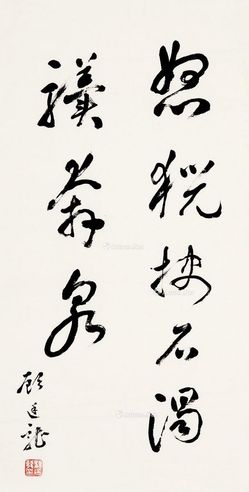 怒猊抉石渴
驥奔泉
顧廷龍